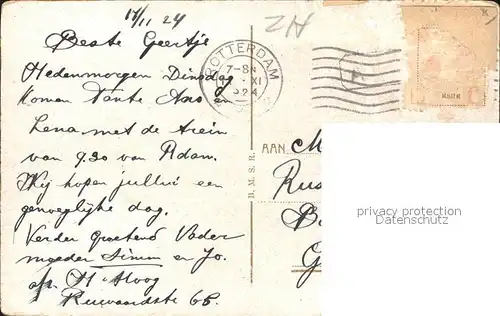 17/11 24
ZH
Beste Geertje
Hedenmorgen Dinsdag
komen Tante Ans en
Lena met de trein
van 9.20 van R'dam.
Wij hopen jullie een
genoeglijke dag.
Verder groetend Vader
moeder Simm en Jo.
afz. H. Hoog
ROTTERDAM
7-8N
XI
1924
D. M. S. R.
AAN
privacy protection
Datenschutz